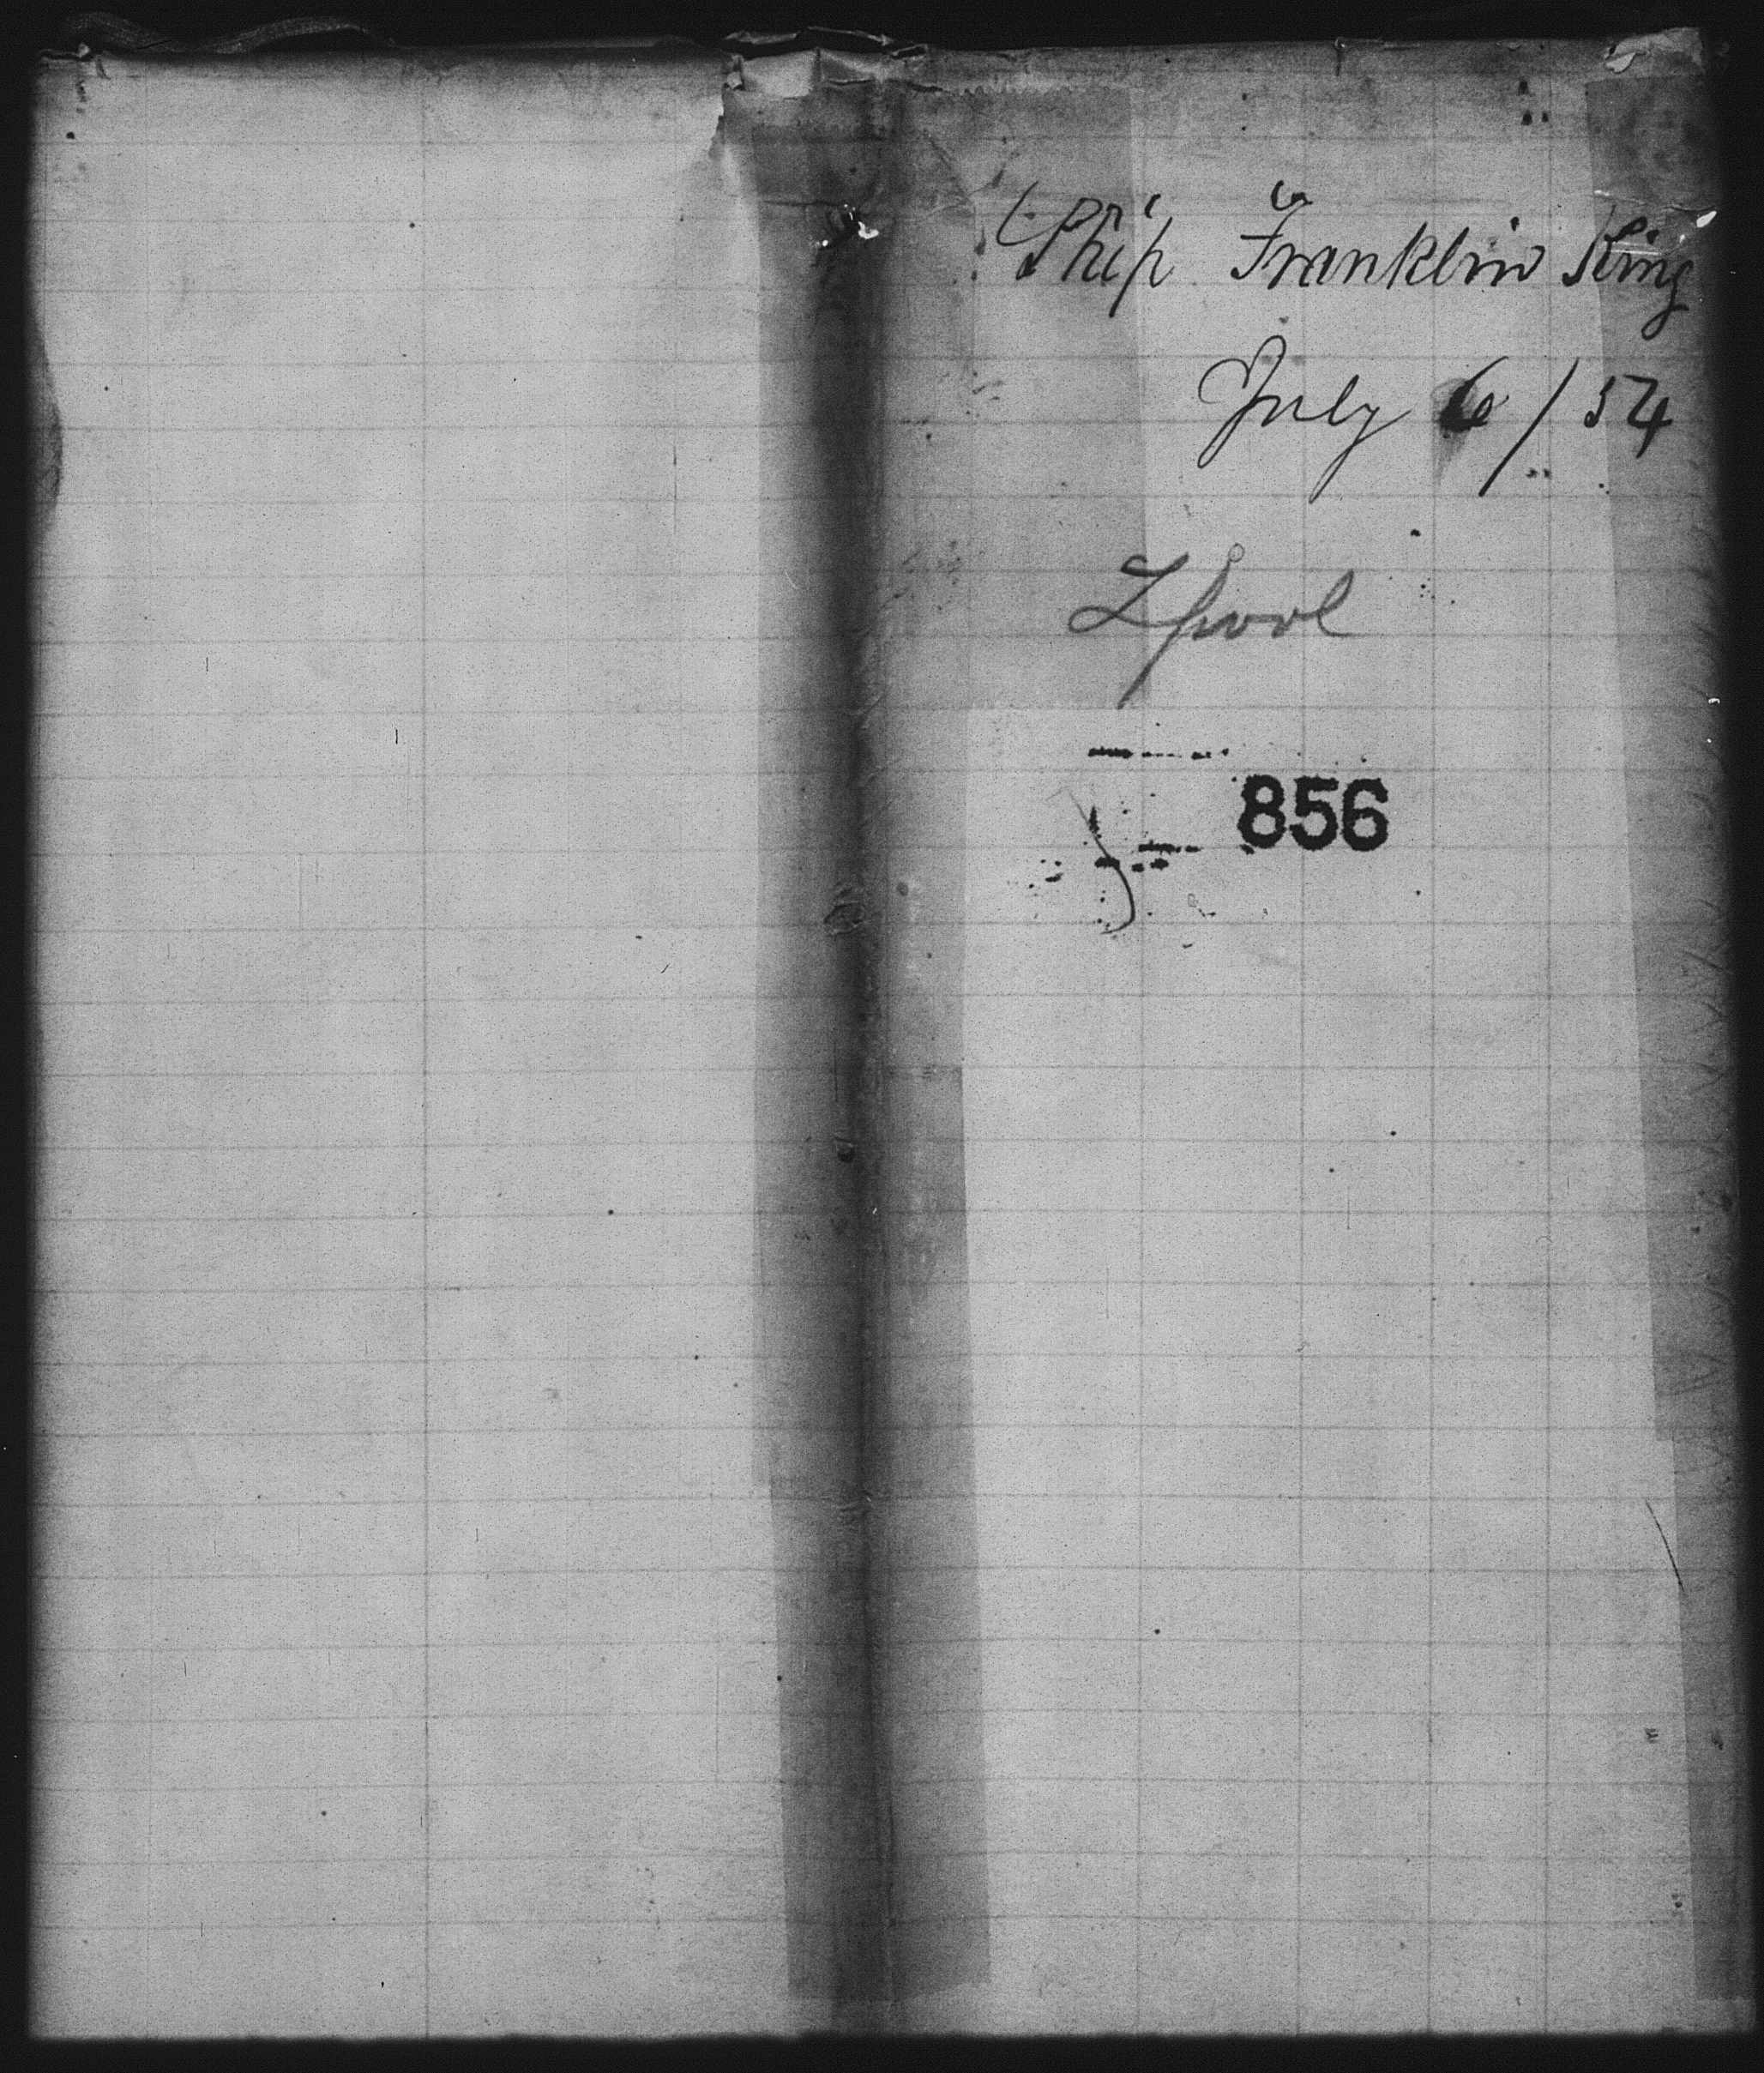 Ship Franklin King
July 6/54
Lpool
856